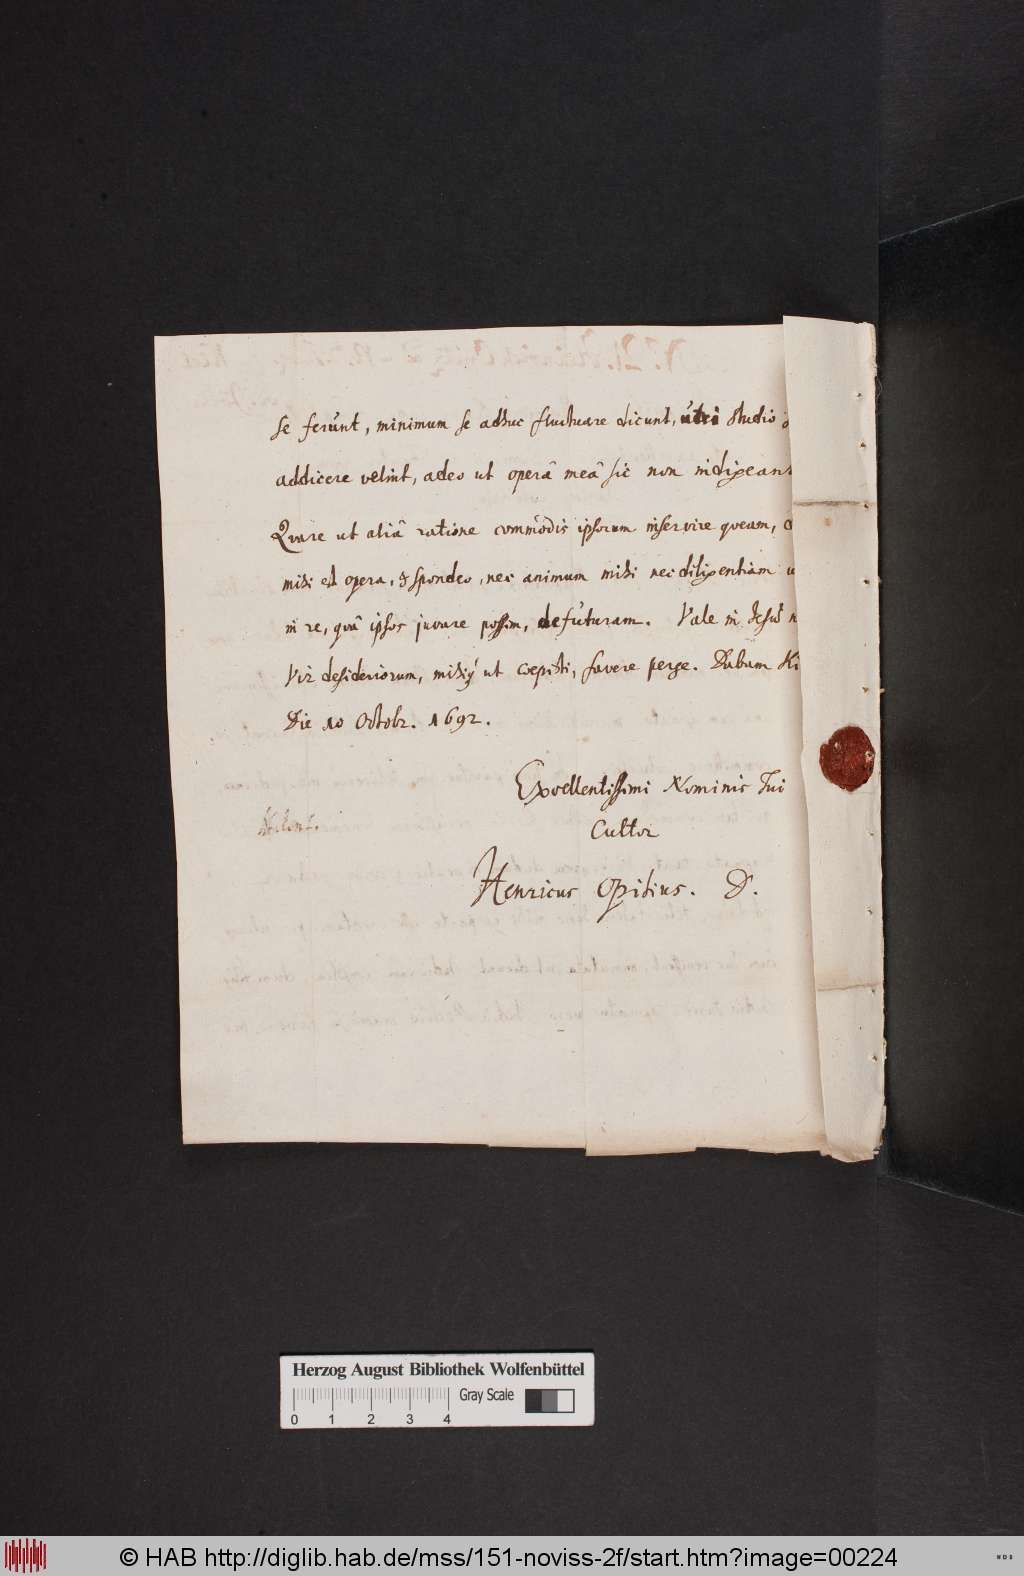 se ferunt, minimum se adhuc fluctuare dicunt, utri studio
addicere velint, adeo ut operâ meâ sic non indigeant
Quare ut aliâ ratione commodis ipsorum inservire queam,
mihi est opera, & spondeo, nec animum mihi nec diligentiam
in re, quâ ipsos juvare possim, defuturam. Vale in Jesu
Vir desideriorum, mihiq́ ut coepisti, favere perge. Dabam
Die 10 Octobr. 1692.
Excellentissimi Nominis Tui
Cultor
Henricus Opitius. D.
Herzog August Bibliothek Wolfenbüttel
Gray Scale
0 1 2 3 4
© HAB http://diglib.hab.de/mss/151-noviss-2f/start.htm?image=00224